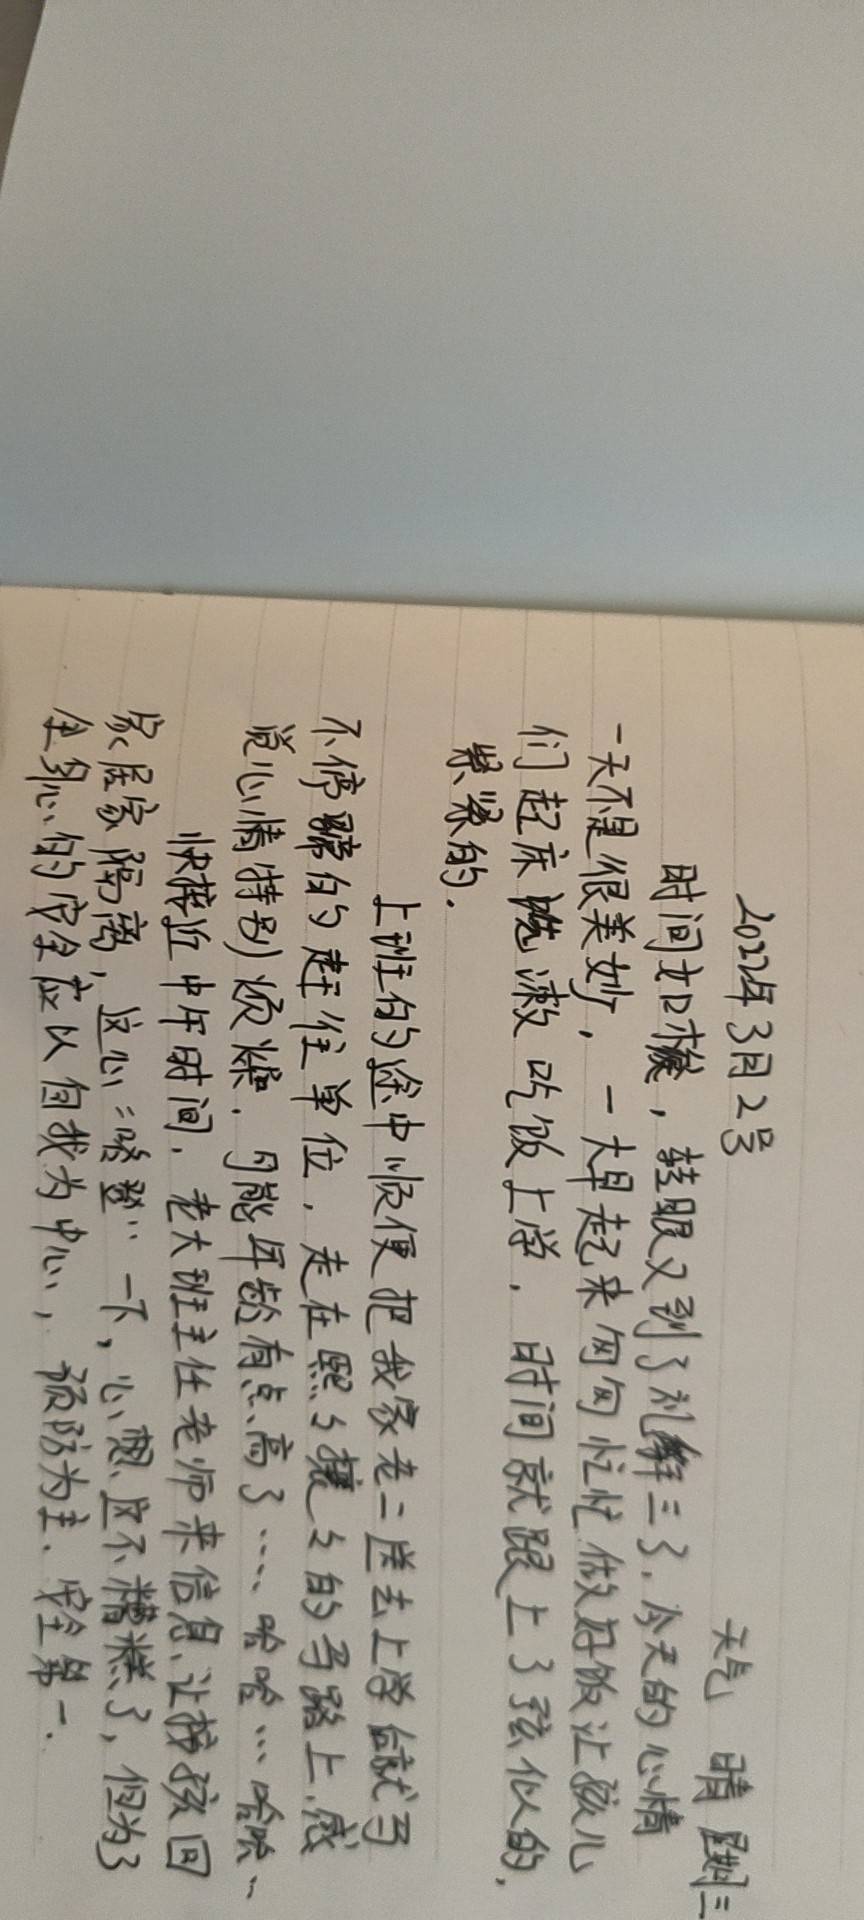 2022年3月2号 天气 晴 星期三
时间如梭，转眼又到了礼拜三了．今天的心情
一天不是很美妙，一大早起来匆匆忙忙做好饭让孩儿
们起床洗漱吃饭上学．时间就跟上了弦似的，
紧紧的．
上班的途中顺便把我家老二送去上学就马
不停蹄的赶往单位，走在熙々攘々的马路上，感
觉心情特别烦燥．可能年龄有点高了……哈哈…哈哈…
快接近中午时间．老大班主任老师来信息、让接孩回
家居家隔离，这心“咯登”一下，心想、这不糟糕了，但为了
全身心的安全应以自我为中心，预防为主、安全第一．